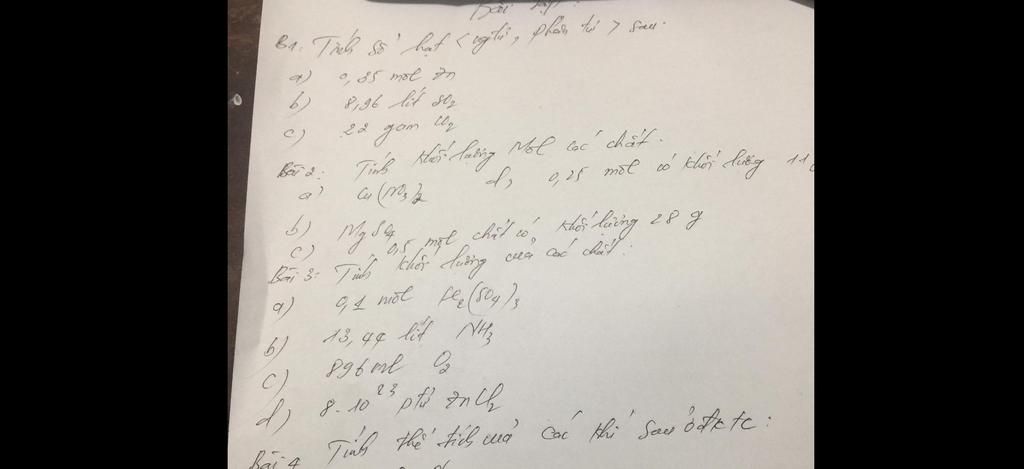 Bài tập:
B1: Tính số hạt < ngtử, phân tử > sau:
a) 0,35 mol Zn
b) 8,96 lít SO2
c) 22 gam
Bài 2: Tính khối lượng Mol các chất.
a) Cu(NO3)2 d, 0,25 mol có khối lượng
b) MgSO4
c) 0,5 mol chất có khối lượng 28 g
Bài 3: Tính khối lượng của các chất:
a) 0,1 mol Fe2(SO4)3
b) 13,44 lít NH3
c) 896 ml O2
d) 8.10^23 ptử ZnCl2
Bài 4 Tính thể tích của các khí sau ở đktc: